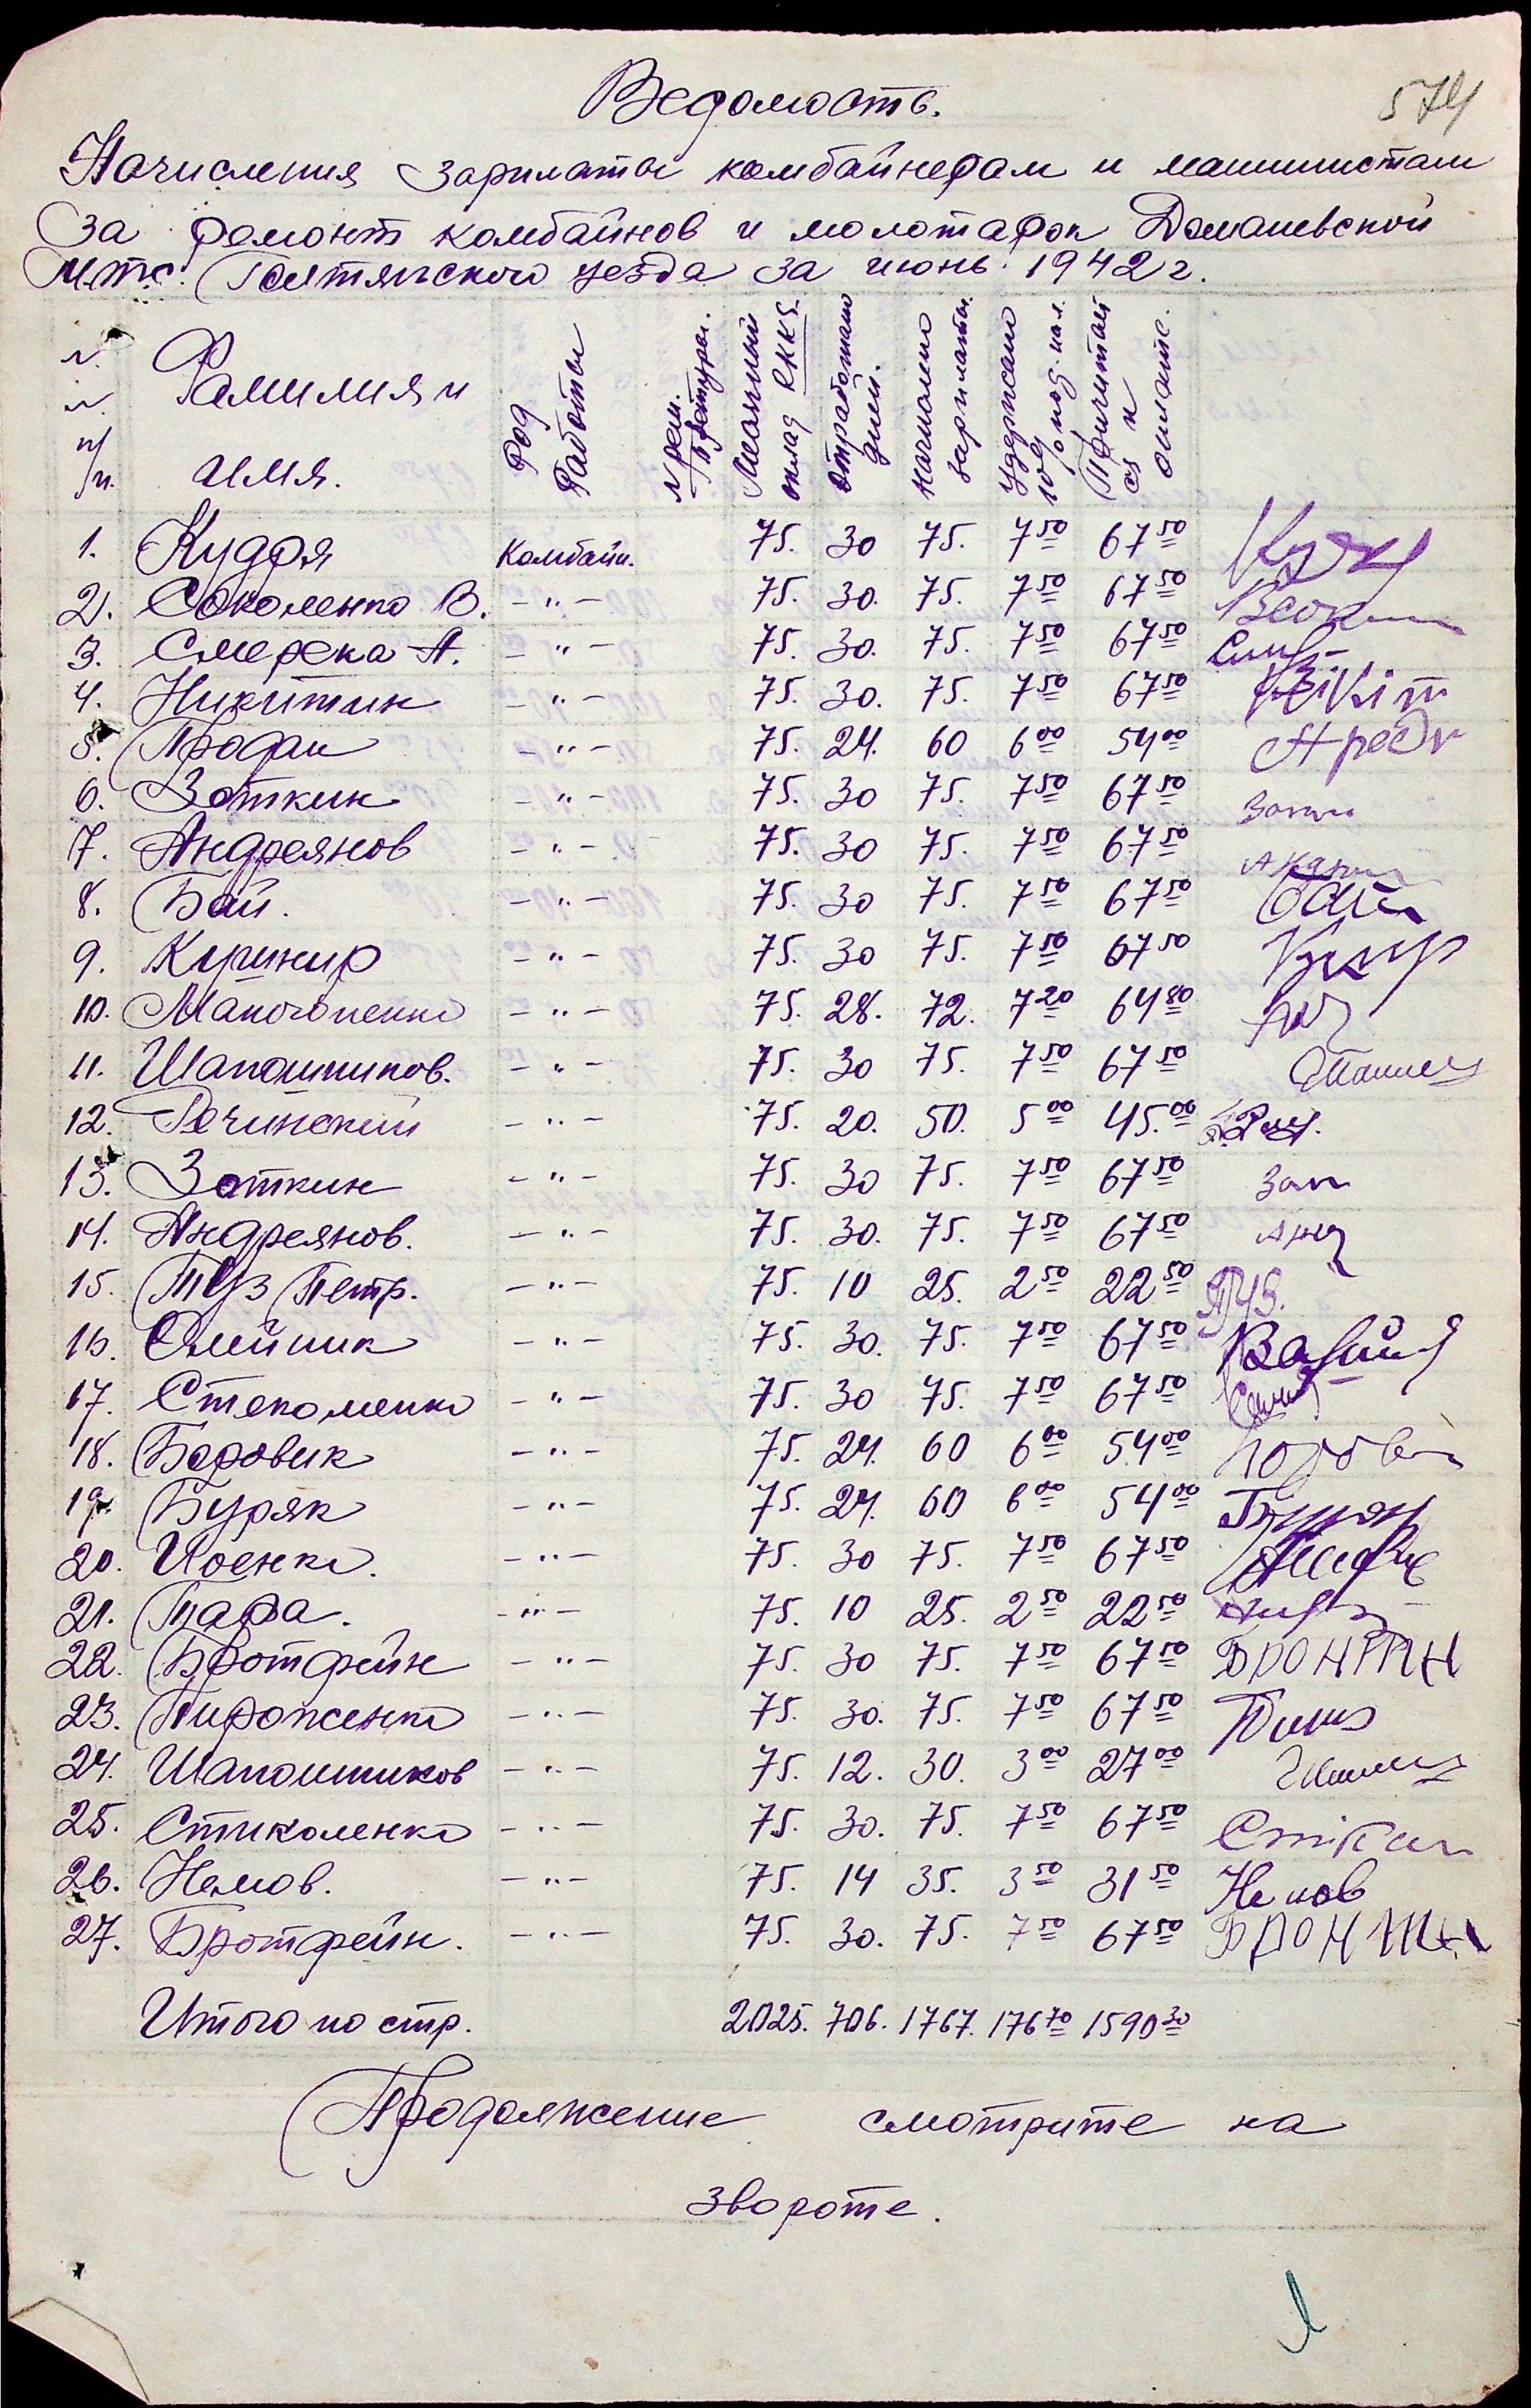 574
Ведомость.
Начисления зарплаты комбайнерам и машинистам
за ремонт комбайнов и молотарок Доманевской
М.т.с. Голтянского уезда за июнь 1942 г.
N. N. п/п. Фамилия и имя. Род Работы Месячный оклад RKKS. Отработано дней. Начислено зарплаты. Удержано 10% под. нал. Причитается к оплате.
1. Кудря Комбайн. 75. 30 75. 7 50 67 50
2. Соколенко В. -"- 75. 30. 75. 7 50 67 50
3. Смерека А. -"- 75. 30. 75. 7 50 67 50
4. Никитин -"- 75. 30. 75. 7 50 67 50
5. Продан -"- 75. 24. 60 6 00 54 00
6. Зоткин -"- 75. 30 75. 7 50 67 50
7. Андреянов -"- 75. 30 75. 7 50 67 50
8. Бай. -"- 75. 30 75. 7 50 67 50
9. Кушнир -"- 75. 30 75. 7 50 67 50
10. -"- 75. 28. 72. 7 20 64 80
11. Шапошников. -"- 75. 30 75. 7 50 67 50
12. Речинский -"- 75. 20. 50. 5 00 45. 00
13. Зоткин -"- 75. 30 75. 7 50 67 50
14. Андреянов. -"- 75. 30. 75. 7 50 67 50
15. Туз Петр. -"- 75. 10 25. 2 50 22 50
16. Олейник -"- 75. 30. 75. 7 50 67 50
17. Стеколенко -"- 75. 30 75. 7 50 67 50
18. Боровик -"- 75. 24. 60 6 00 54 00
19. Буряк -"- 75. 24. 60 6 00 54 00
20. -"- 75. 30 75. 7 50 67 50
21. Тара. -"- 75. 10 25. 2 50 22 50
22. Бротфейн -"- 75. 30 75. 7 50 67 50
23. Пироженко -"- 75. 30. 75. 7 50 67 50
24. Шапошников -"- 75. 12. 30. 3 00 27 00
25. Стиколенко -"- 75. 30. 75. 7 50 67 50
26. Немов. -"- 75. 14 35. 3 50 31 50 Немов
27. Бротфейн. -"- 75. 30. 75. 7 50 67 50
Итого по стр. 2025. 706. 1767. 176 70 1590 30
Продолжение смотрите на
звороте.